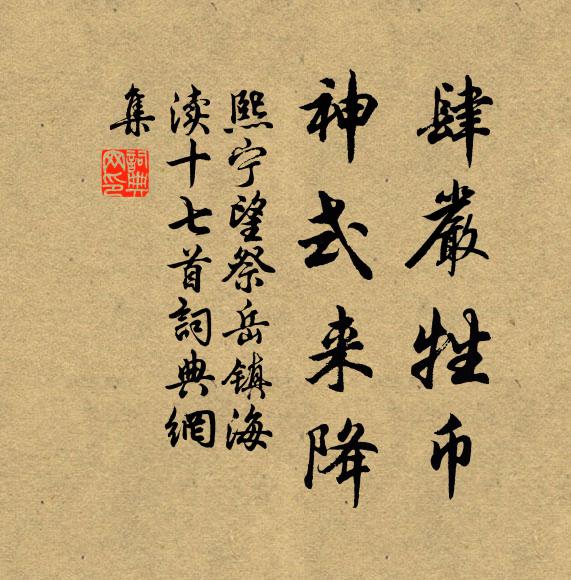 肆嚴牲币
神式来降
熙宁望祭岳镇海
渎十七首詞典網
集
詞典网印